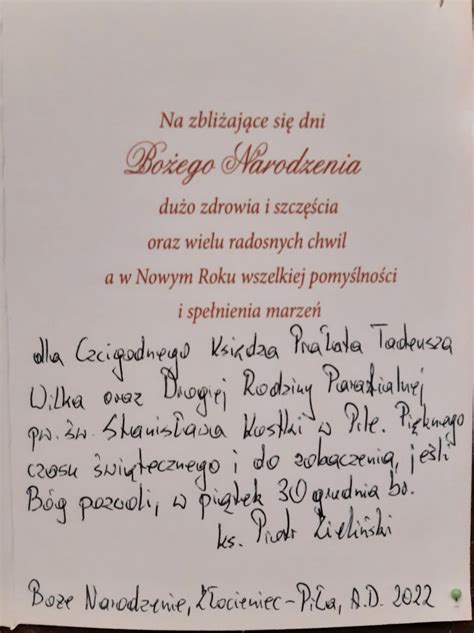 Na zbliżające się dni
Bożego Narodzenia
dużo zdrowia i szczęścia
oraz wielu radosnych chwil
a w Nowym Roku wszelkiej pomyślności
i spełnienia marzeń
dla Czcigodnego Księdza Prałata Tadeusza
Wilka oraz Drogiej Rodziny Parafialnej
pw. św. Stanisława Kostki w Pile. Pięknego
czasu świątecznego i do zobaczenia, jeśli
Bóg pozwoli, w piątek 30 grudnia br.
ks. Piotr Zieliński
Boże Narodzenie, Złocieniec-Piła, A.D. 2022